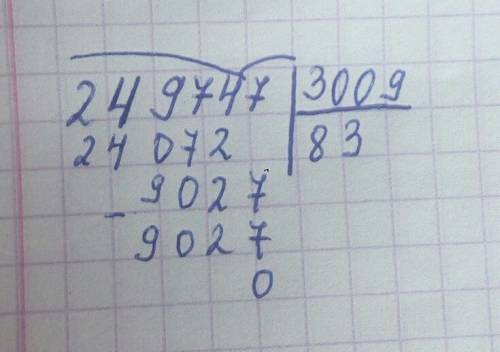 249747 3009
24072 83
- 9027
9027
0